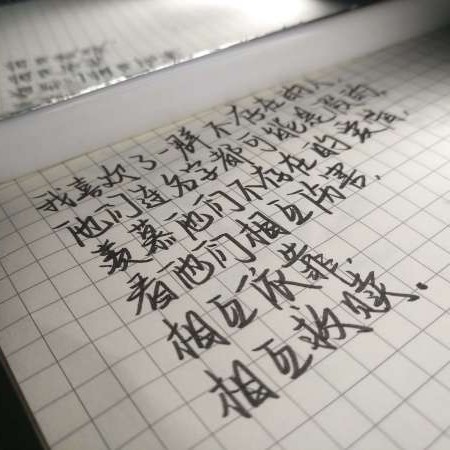 我喜欢了一群不存在的人,
他们连名字都可能是假的,
羡慕他们不存在的爱情,
看他们相互伤害,
相互依靠,
相互救赎.